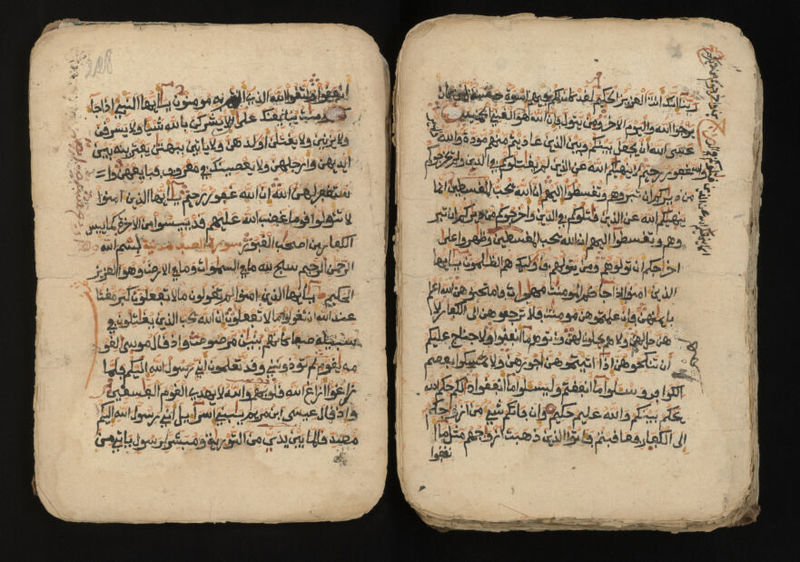 ربنا انك انت العزيز الحكيم لقد كان لكم فيهم اسوة حسنة لمن كان
يرجوا الله واليوم الاخر ومن يتول فان الله هو الغني الحميد
عسى الله ان يجعل بينكم وبين الذين عاديتم منهم مودة والله قدير
والله غفور رحيم لا ينهيكم الله عن الذين لم يقتلوكم في الدين ولم يخرجوكم
من ديركم ان تبروهم وتقسطوا اليهم ان الله يحب المقسطين انما
ينهيكم الله عن الذين قتلوكم في الدين واخرجوكم من ديركم ان تبر
وهم وتقسطوا اليهم ان الله يحب المقسطين وظهروا على
اخرجكم ان تولوهم ومن يتولهم فاوليك هم الظلمون يايها
الذين امنوا اذا جاكم المومنت مهجرت فامتحنوهن الله اعلم
بايمنهن فان علمتموهن مومنت فلا ترجعوهن الى الكفار لا
هن حل لهم ولا هم يحلون لهن واتوهم ما انفقوا ولا جناح عليكم
ان تنكحوهن اذا اتيتموهن اجورهن ولا تمسكوا بعصم
الكوافر وسلوا ما انفقتم وليسلوا ما انفقوا ذلكم حكم الله
يحكم بينكم والله عليم حكيم وان فاتكم شي من ازوجكم
الى الكفار فعاقبتم فاتوا الذين ذهبت ازوجهم مثل ما ا
نفقوا
انفقوا واتقوا الله الذي انتم به مومنون يايها النبي اذا جا
ك المومنت يبايعنك على ان لا يشركن بالله شيا ولا يسرقن
ولا يزنين ولا يقتلن اولدهن ولا ياتين ببهتن يفترينه بين
ايديهن وارجلهن ولا يعصينك في معروف فبايعهن وا
ستغفر لهن الله ان الله غفور رحيم يايها الذين امنوا
لا تتولوا قوما غضب الله عليهم قد ييسوا من الاخرة كما ييس
الكفار من اصحب القبور سورة الصف مدنية بسم الله
الرحمن الرحيم سبح لله ما في السموات وما في الارض وهو العزيز
الحكيم يايها الذين امنوا لم تقولون ما لا تفعلون كبر مقتا
عند الله ان تقولوا ما لا تفعلون ان الله يحب الذين يقتلون في
سبيله صفا كانهم بنين مرصوص واذ قال موسى لقو
مه يقوم لم توذونني وقد تعلمون اني رسول الله اليكم فلما
زاغوا ازاغ الله قلوبهم والله لا يهدي القوم الفسقين
واذ قال عيسى ابن مريم يبني اسرايل اني رسول الله اليكم
مصدقا لما بين يدي من التورية ومبشرا برسول ياتي من